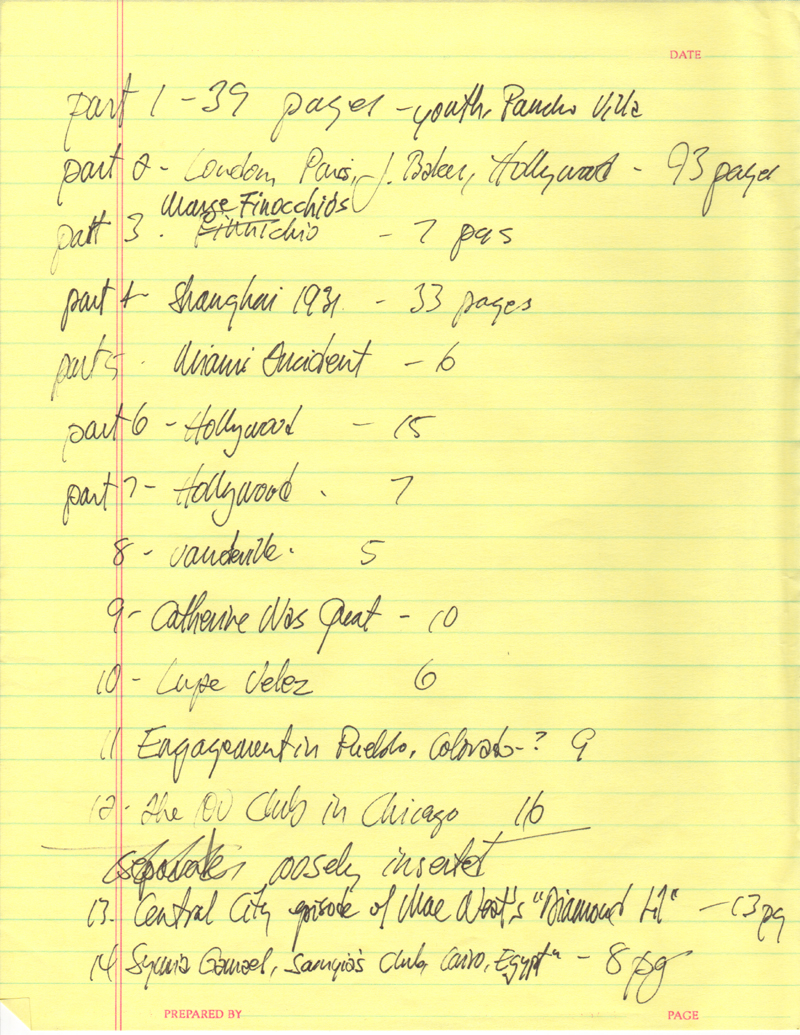 DATE
part 1 - 39 pages - youth, Pancho Villa
part 2 - London, Paris, J. Baker, Hollywood - 93 pages
Finocchios
part 3. - 7 pgs
part 4 - Shanghai 1931 - 33 pages
part 5. Miami Accident - 6
part 6 - Hollywood - 15
part 7 - Hollywood. 7
8 - vaudeville. 5
9 - Catherine Was Great - 10
10 - Lupe Velez 6
11 Engagement in Pueblo, Colorado-? 9
12. the 100 Club in Chicago 16
loosely inserted
13. Central City episode of Mae West's "Diamond Lil" - 13 pg
14 Gamael, Club, Cairo, Egypt" - 8 pg
PREPARED BY
PAGE